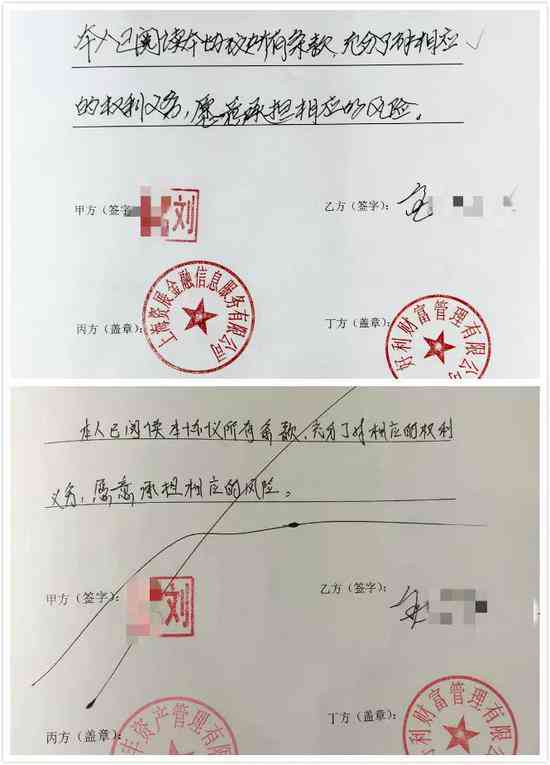 本人已阅读本协议所有条款，充分了解相应
的权利义务，愿意承担相应的风险。
甲方（签字
刘
乙方（签字）：
丙方（盖章）：
上海资展金融信息服务有限公司
丁方（盖章）：
好利财富管理有限公司
本人已阅读本协议所有条款，充分了对相应的权利
义务，愿意承担相应的风险。
甲方（签字）：
刘
乙方（签字）：
丙方（盖章）：
丰资产管理有限公
丁方（盖章）：
好利财富管理有限公司